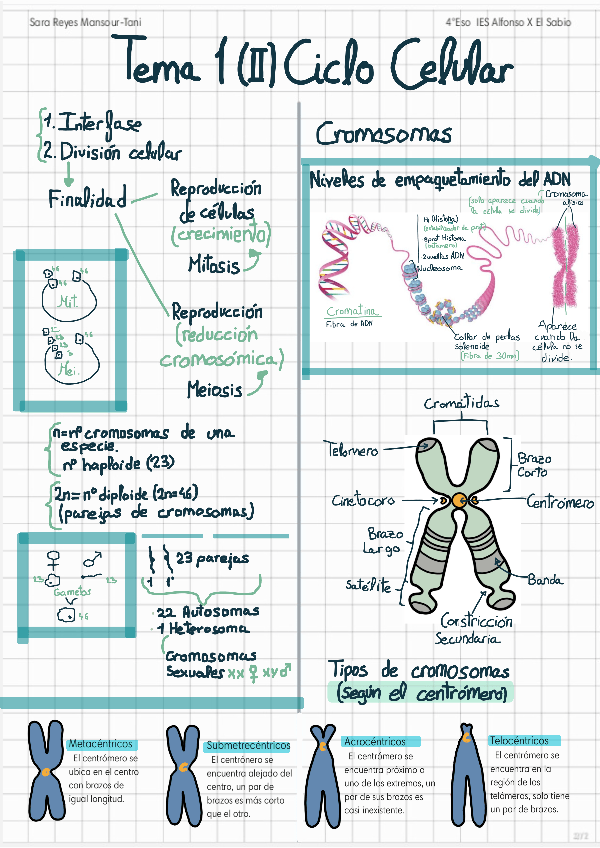 Sara Reyes Mansour-Tani
4°Eso IES Alfonso X El Sabio
Tema 1 (II) Ciclo Celular
1. Interfase
2. División celular
Finalidad
Reproducción
de células
(crecimiento)
Mitosis
Reproducción
(reducción
cromosómica)
Meiosis
46
46
46
Mit.
23
23
23
Mei.
n=nº cromosomas de una
especie.
nº haploide (23)
2n= nº diploide (2n=46)
(parejas de cromosomas)
23
23
Gametos
46
23 parejas
1 1'
· 22 Autosomas
· 1 Heterosoma
Cromosomas
Sexuales xx ♀ xy ♂
Cromosomas
Niveles de empaquetamiento del ADN
(solo aparece cuando
la célula se divide)
Cromosoma
H1 (Histona)
8 prot Histona
(octámero)
2 vueltas ADN
Nucleosoma
Cromatina
Fibra de ADN
Collar de perlas
solenoide
(Fibra de 30nm)
Aparece
cuando la
célula no se
divide.
Cromátidas
Telómero
Brazo
Corto
Cinetocoro
Centrómero
Brazo
Largo
Satélite
Banda
Constricción
Secundaria
Tipos de cromosomas
(según el centrómero)
Metacéntricos
El centrómero se
ubica en el centro
con brazos de
igual longitud.
Submetrecéntricos
El centrónero se
encuentra alejado del
centro, un par de
brazos es más corto
que el otro.
Acrocéntricos
El centrómero se
encuentra próximo a
uno de los extremos, un
par de sus brazos es
casi inexistente.
Telocéntricos
El centrómero se
encuentra en la
región de los
telómeros, solo tiene
un par de brazos.